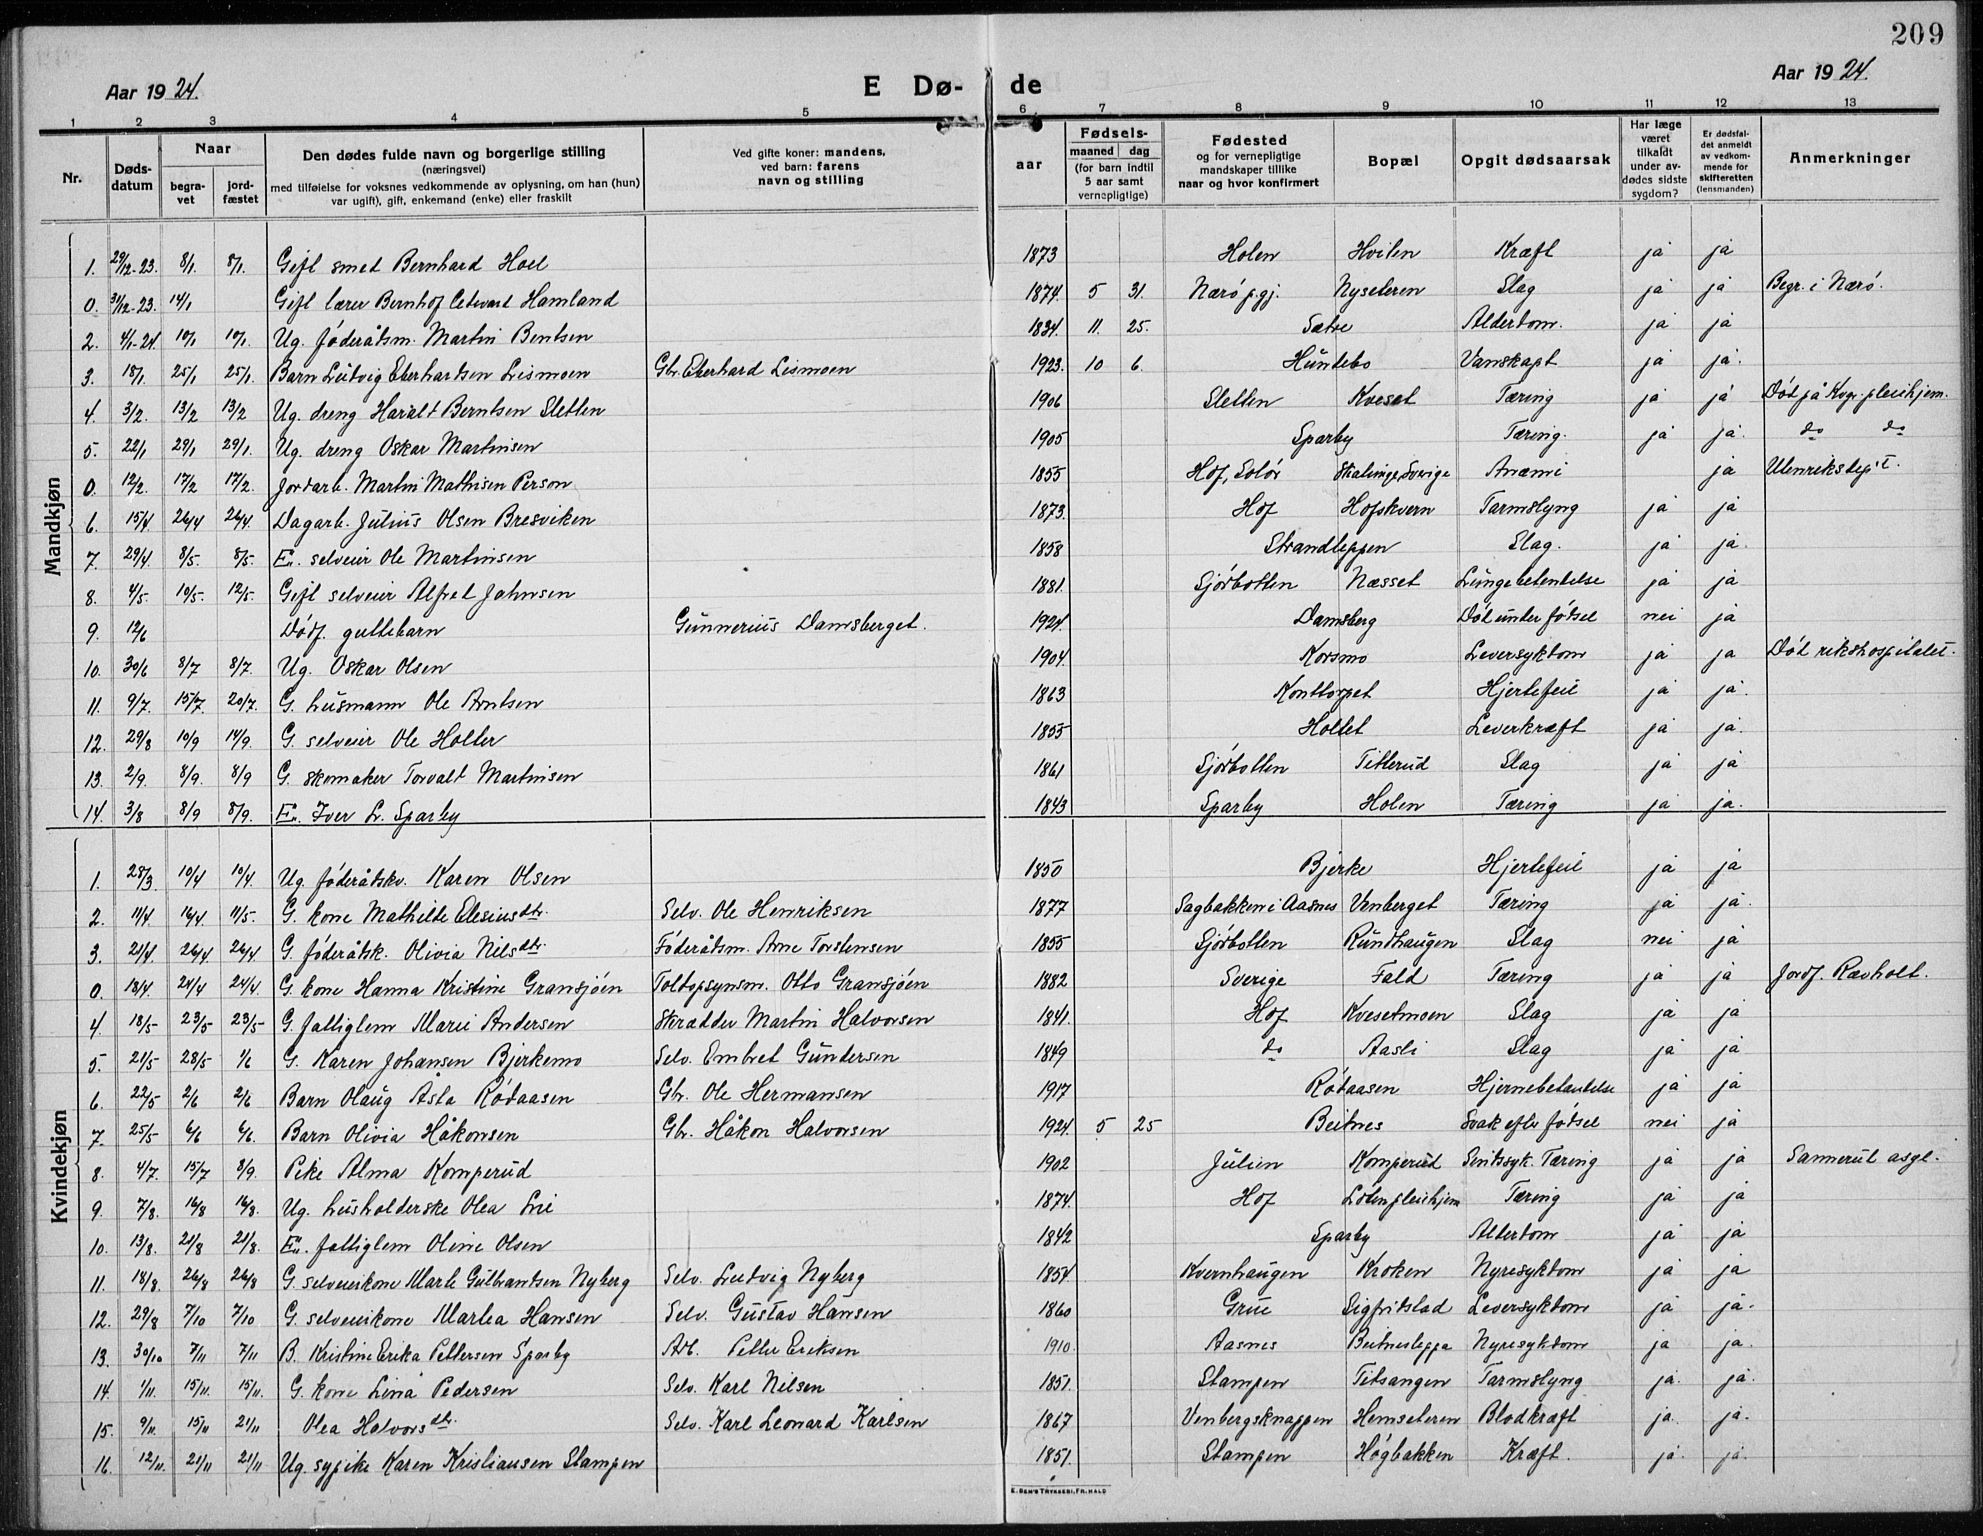 209
Aar 1924. E Dø- de Aar 1924.
1 2 3 4 5 6 7 8 9 10 11 12 13
Nr. Døds-datum Naar begra-vet jord-fæstet Den dødes fulde navn og borgerlige stilling (næringsvei) med tilføielse for voksnes vedkommende av oplysning, om han (hun) var ugift), gift, enkemand (enke) eller fraskilt Ved gifte koner: mandens, ved barn: farens navn og stilling aar Fødsels- maaned dag (for barn indtil 5 aar samt vernepligtige) Fødested og for vernepligtige mandskaper tillike naar og hvor konfirmert Bopæl Opgit dødsaarsak Har læge været tilkaldt under av-dødes sidste sygdom? Er dødsfal-det anmeldt av vedkom-mende for skifteretten (lensmanden) Anmerkninger
Mandkjøn
1. 29/12-23. 8/1. 8/1. Gift smed Bernhard Hoel 1873 Holen Hvilen Kræft ja ja
0. 31/12-23. 14/1 Gift lærer Bernhof Hamland 1874. 5 31. Nærö p.gj. Nyseteren Slag ja ja Begr. i Nærö.
2. 4/1-24. 10/1 10/1. Ug. föderådsm. Martin Bentsen 1834. 11. 25. Sætre Alderdom. ja ja
3. 18/1. 25/1 25/1. Barn Ludvig Eberhardsen Lismoen Gbr. Eberhard Lismoen 1923. 10 6. Huntebo Vanskapt ja ja.
4. 3/2. 13/2 13/2 Ug. dreng Haralt Berntsen Sletten 1906 Sletten Kveset Tæring ja ja Död på Kvgr. pleiehjem.
5. 22/1 29/1 29/1. Ug. dreng Oskar Martinsen 1905 Sparby Tæring. ja ja. do do
0. 12/2. 17/2 17/2. Jordarb. Martin Mathisen Person 1855 Hof, Solör Sverige Anæmi ja Utenriksdep't.
6. 15/4. 26/4 26/4. Dagarb. Julius Olsen Bresviken 1873. Hof Hofskvern Tarmslyng ja ja
7. 29/4 8/5. 8/5. En. selveier Ole Martinsen 1858 Strandleppen Slag. ja ja.
8. 4/5. 10/5. 12/5. Gift selveier Alfred Johnsen 1881. Sjörbotten Næsset Lungebetendelse ja ja
9. 12/6 Dödf. guttebarn Gunnerius Damsberget. 1924. Damsberg Död under födsel nei ja
10. 30/6 8/7 8/7. Ug. Oskar Olsen 1904. Korsmo Leversykdom ja ja Död rikshospitalet.
11. 9/7. 15/7. 20/7. G. husmann Ole Arntsen 1863 Konttorpet Hjertefeil ja ja.
12. 29/8 10/9 14/9. G. selveier Ole Holter 1855 Holtet Leverkræft ja ja.
13. 2/9. 8/9. 8/9 G. skomaker Torvalt Martinsen 1861 Sjörbotten Titterud Slag ja ja
14. 3/8 8/9 8/9. En. Iver L. Sparby 1843 Sparby Holen Tæring ja ja.
Kvindekjøn
1. 28/3 10/4 10/4. Ug. föderådskv. Karen Olsen 1850 Bjerke Hjertefeil ja ja
2. 11/4. 16/4 11/5. G. kone Mathilde Elesiusdtr. Selv. Ole Henriksen 1877 Sagbakken i Aasnes Venberget Tæring ja ja.
3. 21/4. 26/4 26/4 G. föderådsk. Olivia Nilsdtr. Föderådsm. Arne Torstensen 1855 Sjörbotten Rundhaugen Slag nei ja
0. 18/4. 24/4 24/4. G. kone Hanna Kristine Gransjöen Toldopsynsm. Otto Gransjöen 1882 Sverige Fald Tæring ja ja Jordf. Ravholt.
4. 18/5 23/5 23/5 G. fattiglem Marie Andersen Skrædder Martin Halvorsen 1841. Hof Kvesetmoen Slag ja ja
5. 21/5 28/5 1/6 G. Karen Johansen Bjerkemo Selv. Embret Gundersen 1849 do Aasli Slag ja ja
6. 22/5 2/6 2/6 Barn Olaug Asta Rödaasen Gbr. Ole Hermansen 1917 Rödaasen Hjernebetændelse ja ja
7. 25/5 6/6 6/6. Barn Olivia Håkonsen Gbr. Håkon Halvorsen 1924. 5 25 Beitnes Svak efter födsel nei ja
8. 4/7. 15/7 8/9. Pike Alma Komperud 1902 Julien Komperud Sindssyk. Tæring ja ja Sannerud asyl.
9. 7/8. 16/8 16/8. Ug. husholderske Olea Lie 1874. Hof pleiehjem Tæring ja ja
10. 13/8. 21/8 21/8. En. fattiglem Oline Olsen 1842 Sparby Alderdom ja ja
11. 18/8. 26/8 26/8 G. selveierkone Marte Gulbrandsen Nyberg Selv. Ludvig Nyberg 1854 Kvernhaugen Kroken Nyresykdom ja ja
12. 29/8 7/10 7/10 G. selveierkone Marthea Hansen Selv. Gustav Hansen 1860 Grue Sigfridslad Leversykdom ja ja.
13. 30/10 7/11 7/11 B. Kristine Erika Pettersen Sparby Arb. Petter Eriksen 1910 Aasnes Beitneslegga Nyresykdom ja ja.
14. 1/11. 15/11. 15/11. G. kone Lina Pedersen Selv. Karl Nilsen 1851. Stampen Titsangen Tarmslyng ja. ja.
15. 9/11. 15/11 21/11 Olea Halvorsdtr. Selv. Karl Leonard Karlsen 1867 Venbergsknappen Hemseteren Blodkræft ja. ja.
16. 12/11. 21/11 21/11 Ug. sypike Karen Kristiansen Stampen 1851. Stampen Högbakken Kræft. ja. ja.
E. SEM'S TRYKKERI, FR. HALD